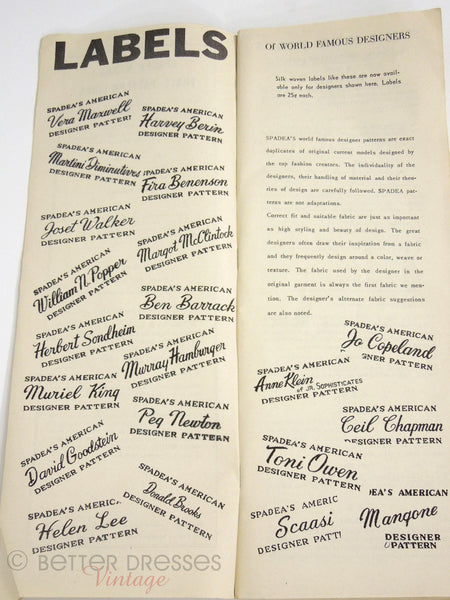 LABELS
SPADEA'S AMERICAN
Vera Maxwell
DESIGNER PATTERN
SPADEA'S AMERICAN
Harvey Berin
DESIGNER PATTERN
SPADEA'S AMERICAN
Martini Diminutives
DESIGNER PATTERN
SPADEA'S AMERICAN
Fira Benenson
DESIGNER PATTERN
SPADEA'S AMERICAN
Joset Walker
DESIGNER PATTERN
SPADEA'S AMERICAN
Margot McClintock
DESIGNER PATTERN
SPADEA'S AMERICAN
William N. Popper
DESIGNER PATTERN
SPADEA'S AMERICAN
Ben Barrack
DESIGNER PATTERN
SPADEA'S AMERICAN
Herbert Sondheim
DESIGNER PATTERN
SPADEA'S AMERICAN
Murray Hamburger
DESIGNER PATTERN
SPADEA'S AMERICAN
Muriel King
DESIGNER PATTERN
SPADEA'S AMERICAN
Peg Newton
DESIGNER PATTERN
SPADEA'S AMERICAN
David Goodstein
DESIGNER PATTERN
SPADEA'S AMERICAN
Donald Brooks
DESIGNER PATTERN
SPADEA'S AMERICAN
Helen Lee
DESIGNER PATTERN
Of WORLD FAMOUS DESIGNERS
Silk woven labels like these are now avail-
able only for designers shown here. Labels
are 25¢ each.
SPADEA'S world famous designer patterns are exact
duplicates of original current models designed by
the top fashion creators. The individuality of the
designers, their handling of material and their theo-
ries of design are carefully followed. SPADEA pat-
terns are not adaptations.
Correct fit and suitable fabric are just as important
as high styling and beauty of design. The great
designers often draw their inspiration from a fabric
and they frequently design around a color, weave or
texture. The fabric used by the designer in the
original garment is always the first fabric we men-
tion. The designer's alternate fabric suggestions
are also noted.
SPADEA'S AMERICAN
Jo Copeland
GNER PATTERN
SPADEA'S AMERICAN
Anne Klein
of JR. SOPHISTICATES
DESIGNER PATTERN
SPADEA'S AMERICAN
Ceil Chapman
PATTERN
SPADEA'S AMERICAN
Toni Owen
DESIGNER PATTERN
SPADEA'S AMERIC
Scaasi
DESIGNER PATT
DEA'S AMERICAN
Mangone
DESIGNER
PATTERN
© BETTER DRESSES
Vintage